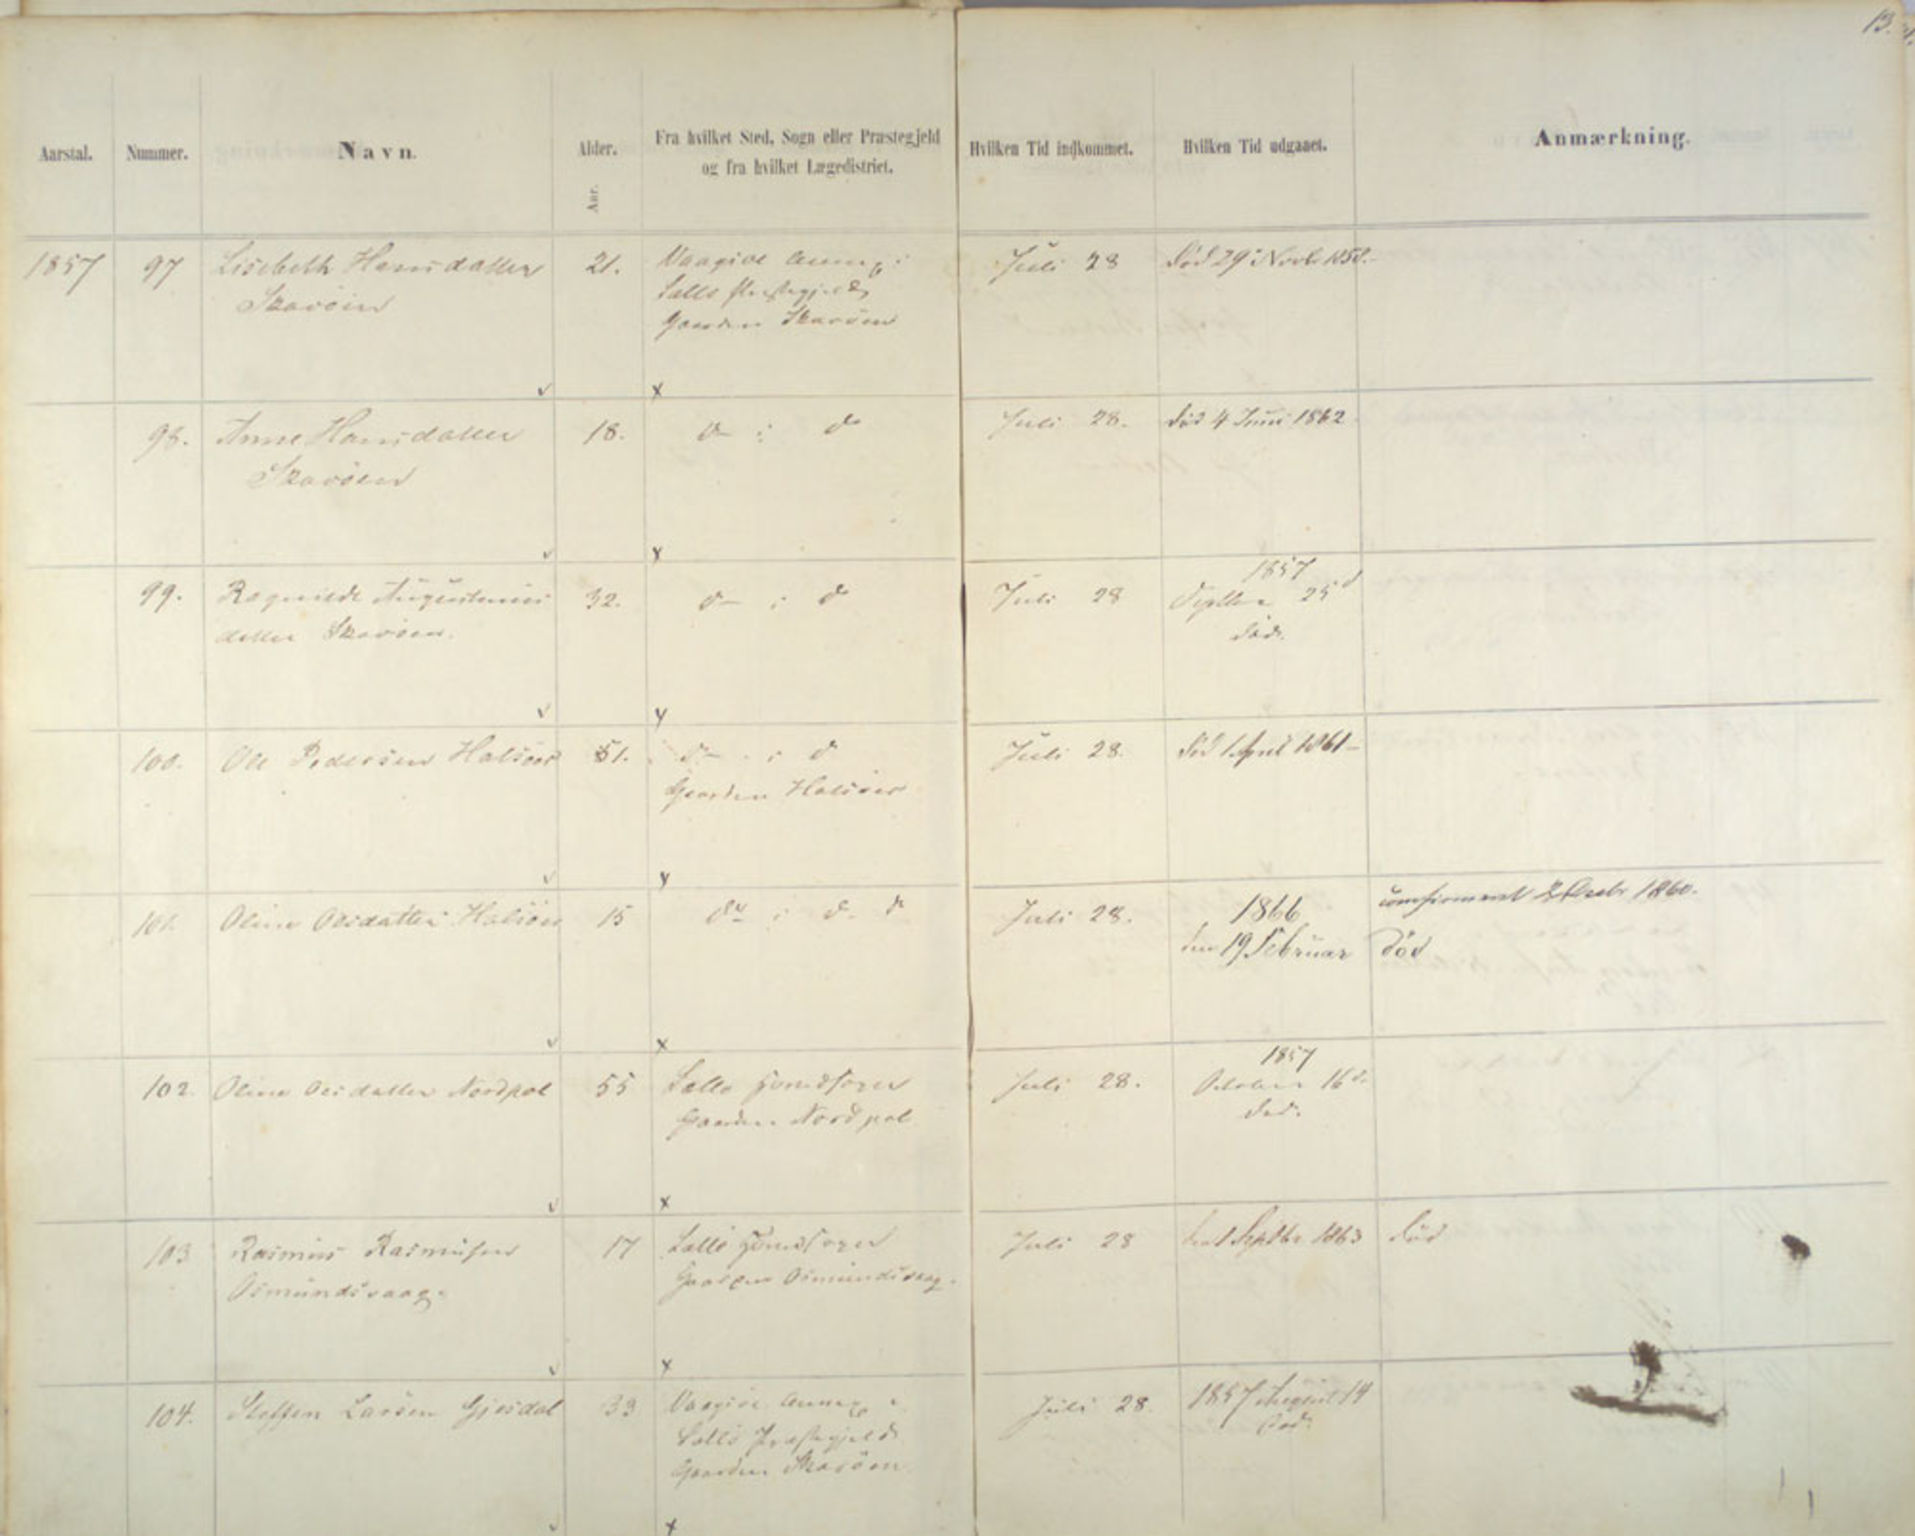 13.
Aarstal.
Nummer.
Navn.
Alder.
Aar.
Fra hvilket Sted, Sogn eller Præstegjeld
og fra hvilket Lægedistrict.
Hvilken Tid indkommet.
Hvilken Tid udgaaet.
Anmærkning.
1857 97 Lisebeth Hansdatter 21. Vaagsöe Annex i Juli 28 död 29 Novbr 1858.
Skavöen Sellö Præstegjeld,
Gaarden Skavöen
98. Anne Hansdatter 18. do i do Juli 28. död 4 Juni 1862
Skavöen
1857
99. Ragnilde Augustinus 32. do i do Juli 28 Septbr 25
datter Skavöen. död.
100. Ole Pedersen Halsöer 51. do i do Juli 28. död 1 April 1861
Gaarden Halsöer
101. Oline Olesdatter Halsöer 15 do i do do Juli 28. 1866 confirmeret 2 Decbr 1860.
den 19 Februar död
1857
102. Oline Olesdatter Nordpol 55 Sellö Hovedsogn Juli 28. October 16
Gaarden Nordpol död.
103 Rasmus Rasmusen 17 Sellö Hovedsogn Juli 28 Septbr 1863 död
Osmundsvaag. Gaarden Osmundsvaag.
104. Steffen Larsen Gjesdal 33 Vaagsöe Annex i Juli 28. 1857 August 14
Sellö Præstegjeld död.
Gaarden Skavöen